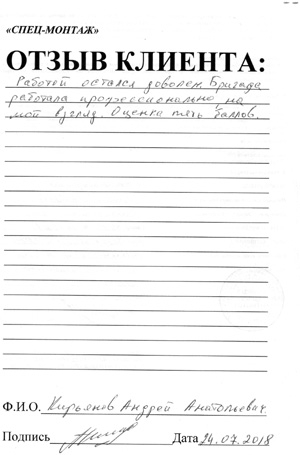 «СПЕЦ-МОНТАЖ»
ОТЗЫВ КЛИЕНТА:
Работой остался доволен. Бригада
работала профессионально на
мой взгляд. Оценка пять баллов.
Ф.И.О. Кирьянов Андрей Анатольевич
Подпись Дата 24.07.2018